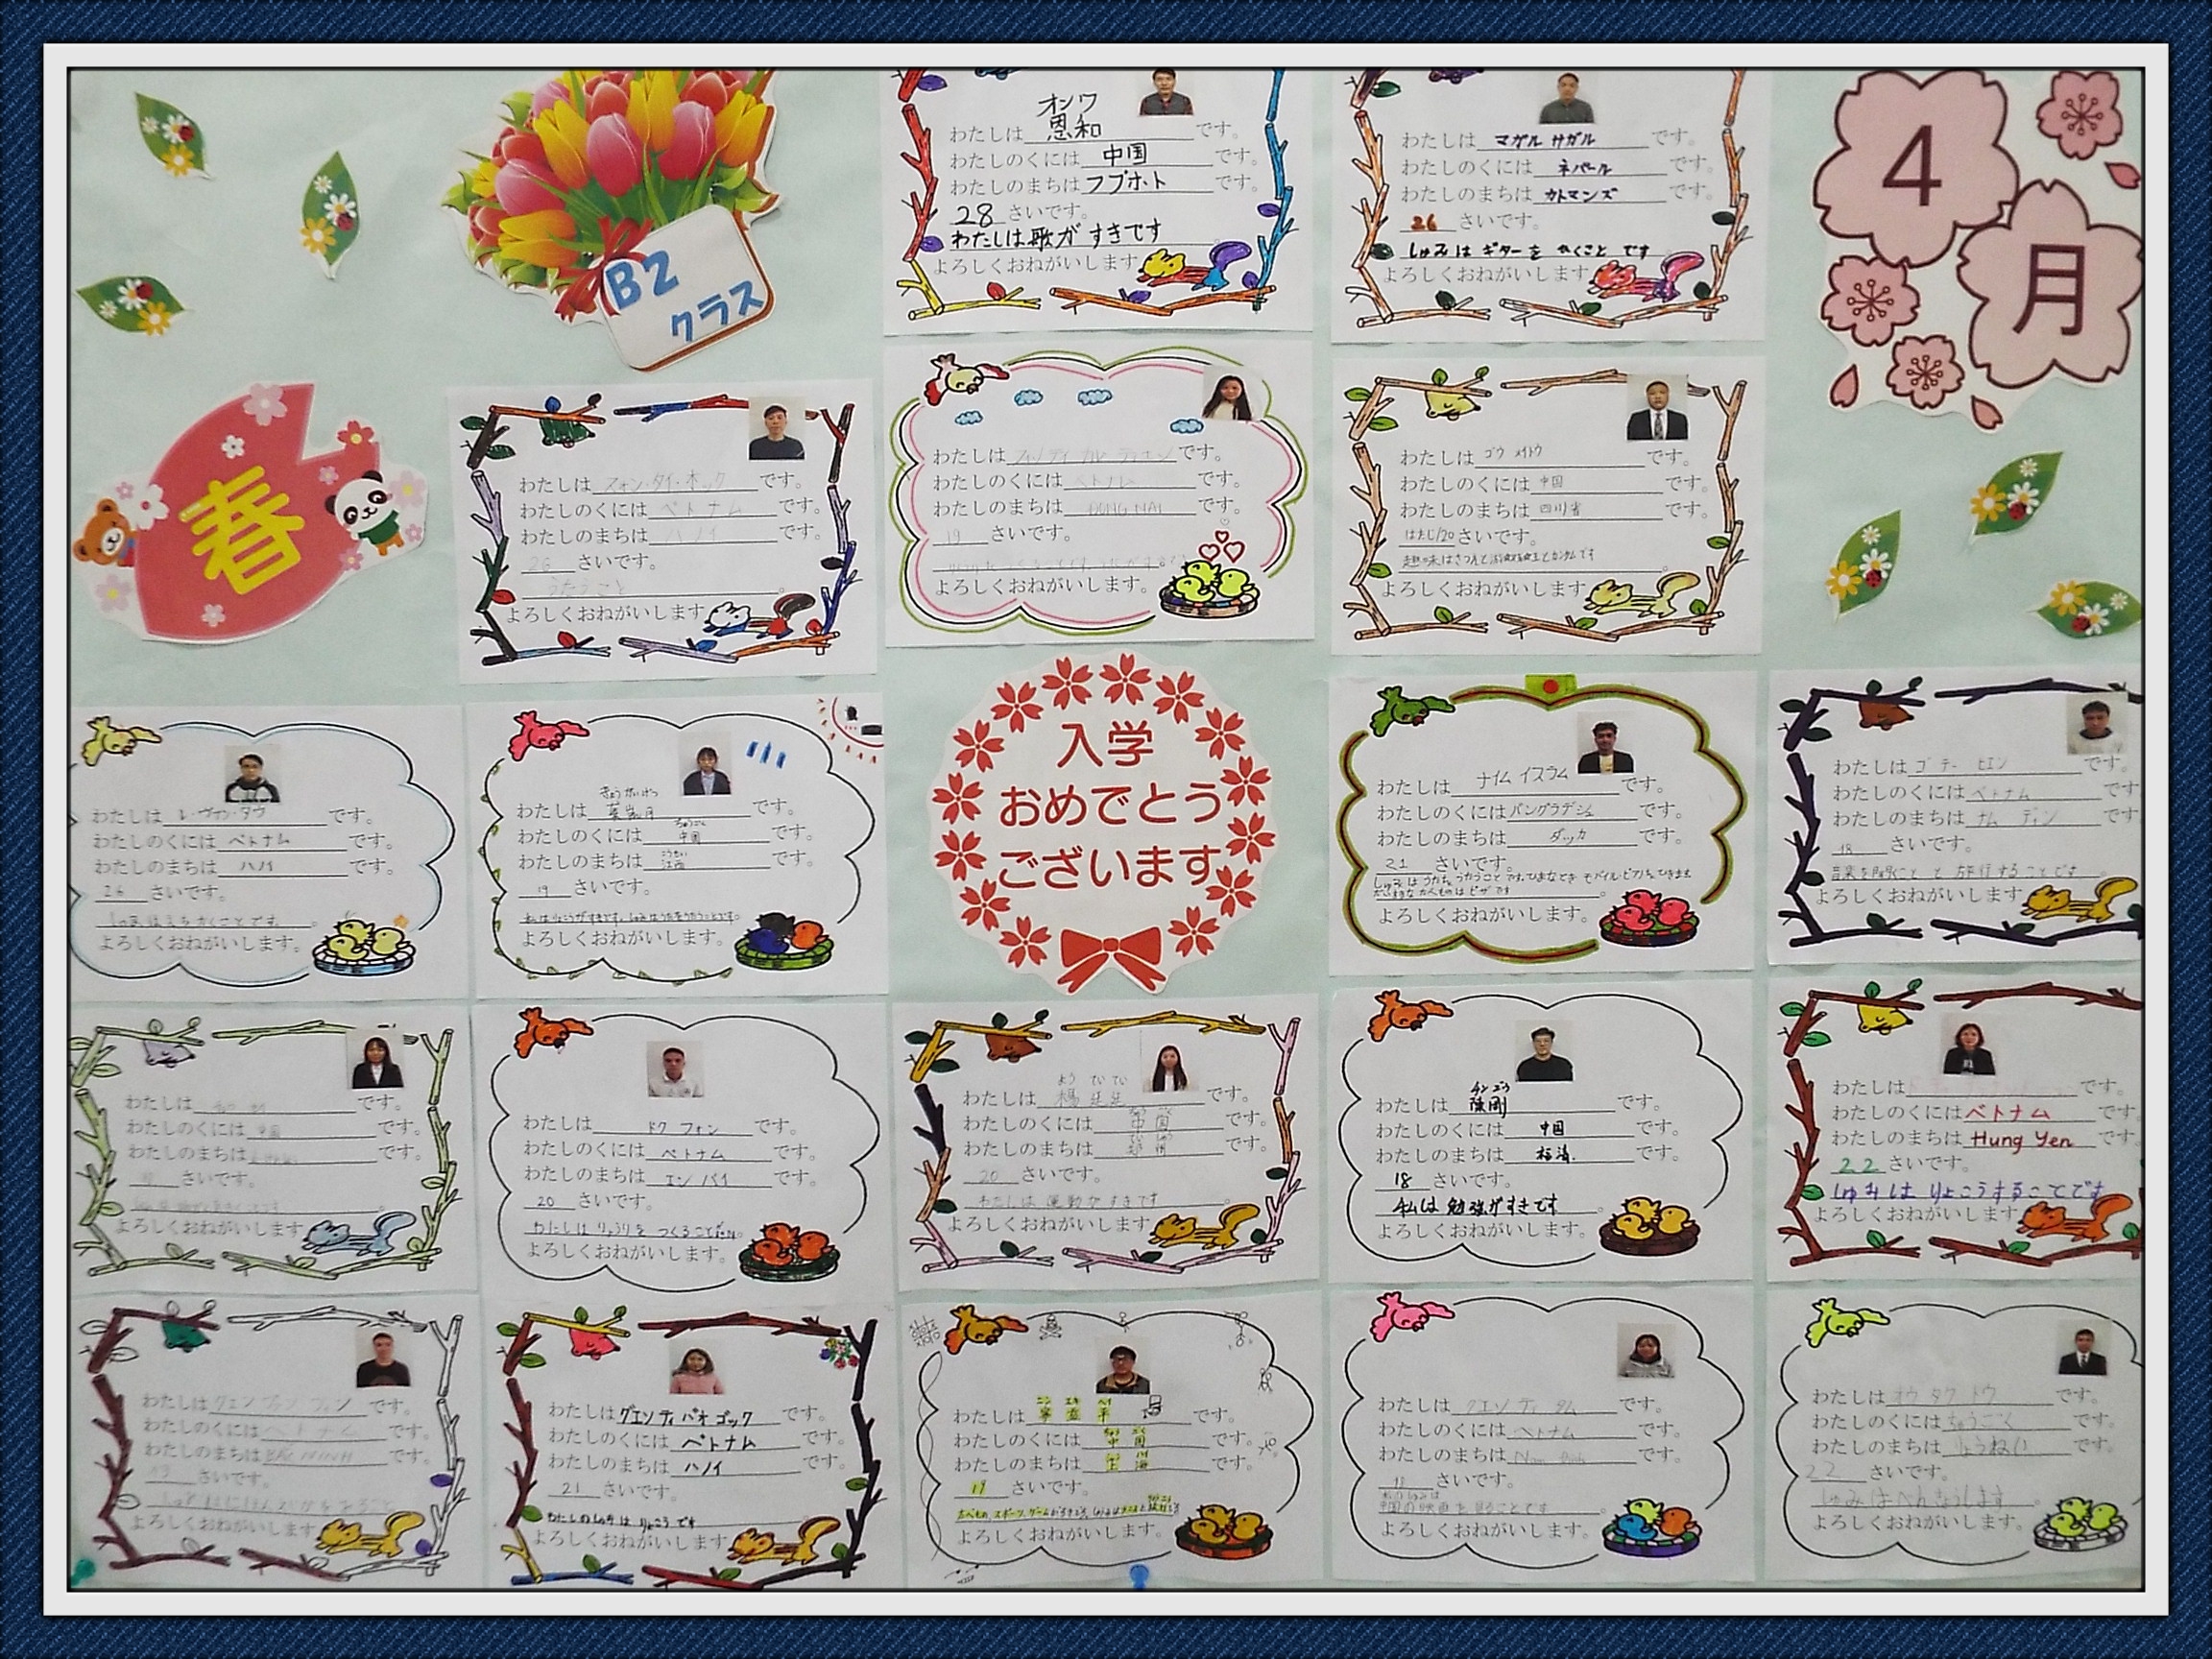 B2
クラス
4
月
春
オンワ
わたしは 恩和 です。
わたしのくには 中国 です。
わたしのまちは フフホト です。
28 さいです。
わたしは歌が すきです
よろしくおねがいします
わたしは マガル サガル です。
わたしのくには ネパール です。
わたしのまちは カトマンズ です。
26 さいです。
しゅみは ギターを ひくこと です
よろしくおねがいします
わたしは です。
わたしのくには ベトナム です。
わたしのまちは ハノイ です。
26 さいです。
うたうこと 。
よろしくおねがいします
わたしは です。
わたしのくには ベトナム です。
わたしのまちは DONG NAI です。
19 さいです。
よろしくおねがいします。
わたしは ゴウ メイトウ です。
わたしのくには 中国 です。
わたしのまちは 四川省 です。
はたち/20 さいです。
よろしくおねがいします
入学
おめでとう
ございます
わたしは レ・ヴァン・タウ です。
わたしのくには ベトナム です。
わたしのまちは ハノイ です。
26 さいです。
しゅみはえをかくことです。
よろしくおねがいします。
わたしは です。
ちゅうごく
わたしのくには 中国 です。
わたしのまちは 江西 です。
19 さいです。
私はりょこうがすきです。しゅみはうたをうたうことです。
よろしくおねがいします。
わたしは ナイム イスラム です。
わたしのくには バングラデシュ です。
わたしのまちは ダッカ です。
21 さいです。
よろしくおねがいします。
わたしは ゴ テー ヒエン です。
わたしのくには ベトナム です。
わたしのまちは ナム ディン です
18 さいです。
音楽を聞くこと と 旅行することです。
よろしくおねがいします
わたしは です。
わたしのくには 中国 です。
わたしのまちは です。
さいです。
よろしくおねがいします
わたしは ドク フォン です。
わたしのくには ベトナム です。
わたしのまちは エンバイ です。
20 さいです。
わたしは りょうりを つくること
よろしくおねがいします。
よう ていてい
わたしは 楊 です。
わたしのくには 中国 です。
わたしのまちは です。
20 さいです。
わたしは 運動が すきです 。
よろしくおねがいします
チン ゴウ
わたしは 陳剛 です。
わたしのくには 中国 です。
わたしのまちは 福清. です。
18 さいです。
私は 勉強がすきです 。
よろしくおねがいします。
わたしは です。
わたしのくには ベトナム です。
わたしのまちは Hung Yen です
22 さいです。
しゅみは りょこうすることです
よろしくおねがいします
わたしは グェン です。
わたしのくには ベトナム です。
わたしのまちは BAC NINH です。
さいです。
よろしくおねがいします
わたしは グエン ティ バオ ゴック です。
わたしのくには ベトナム です。
わたしのまちは ハノイ です。
21 さいです。
わたしのしゅみは りょこう です
よろしくおねがいします
わたしは です。
わたしのくには 中国 です。
わたしのまちは 上海 です。
19 さいです。
よろしくおねがいします。
わたしは グエン ティ タム です。
わたしのくには ベトナム です。
わたしのまちは です。
さいです。
私のしゅみは
中国の映画を 見ることです 。
よろしくおねがいします。
わたしは オウ タク トウ です。
わたしのくには ちゅうごく です。
わたしのまちは りょうねい です。
22 さいです。
よろしくおねがいします。